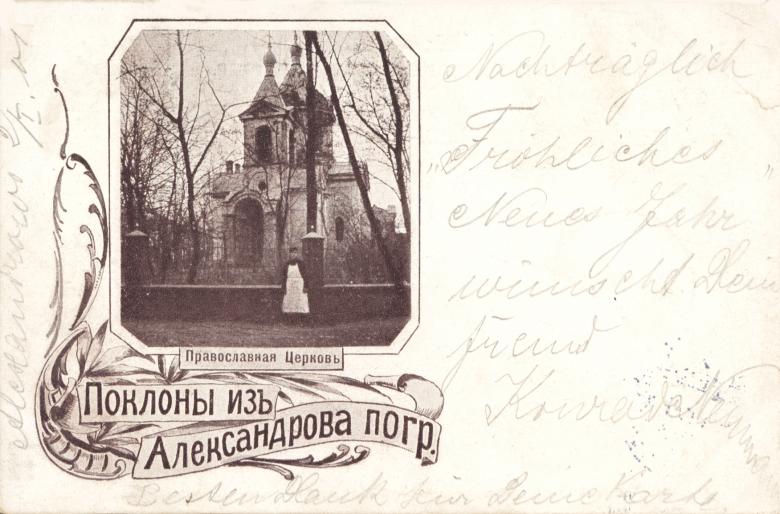 Православная Церковь
Поклоны изъ
Александрова погр.
Nachträglich
„Fröhliches"
Neues Jahr
wünscht Dein
freund
Konrad
Besten Dank für Deine Karte.
Alexandrowo